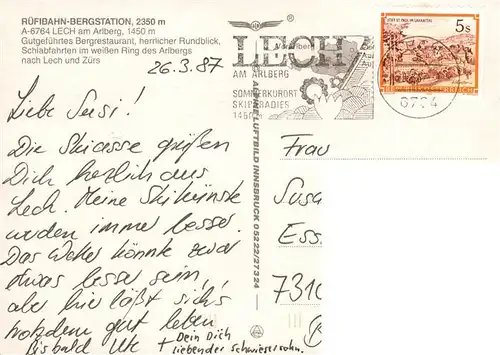 RÜFIBAHN-BERGSTATION, 2350 m
A-6764 LECH am Arlberg, 1450 m
Gutgeführtes Bergrestaurant, herrlicher Rundblick,
Schiabfahrten im weißen Ring des Arlbergs
nach Lech und Zürs
26.3.87
Liebe Susi!
Die Skiasse grüßen
Dich herzlich aus
Lech. Meine Skikünste
werden immer besser.
Das Wetter könnte zwar
etwas besser sein,
aber hier läßt sich's
trotzdem gut leben
Bisbald Ute + Dein Dich
liebender Schwiegersohn.
ALPINE LUFTBILD INNSBRUCK 05222/27324
Vorarlberg
LECH
AM ARLBERG
SOMMERKURORT
SKIPARADIES
1450 m
6764
STIFT ST. PAUL IM LAVANTTAL
5s
REPUBLIK ÖSTERREICH
Frau
Susa
Ess
7310